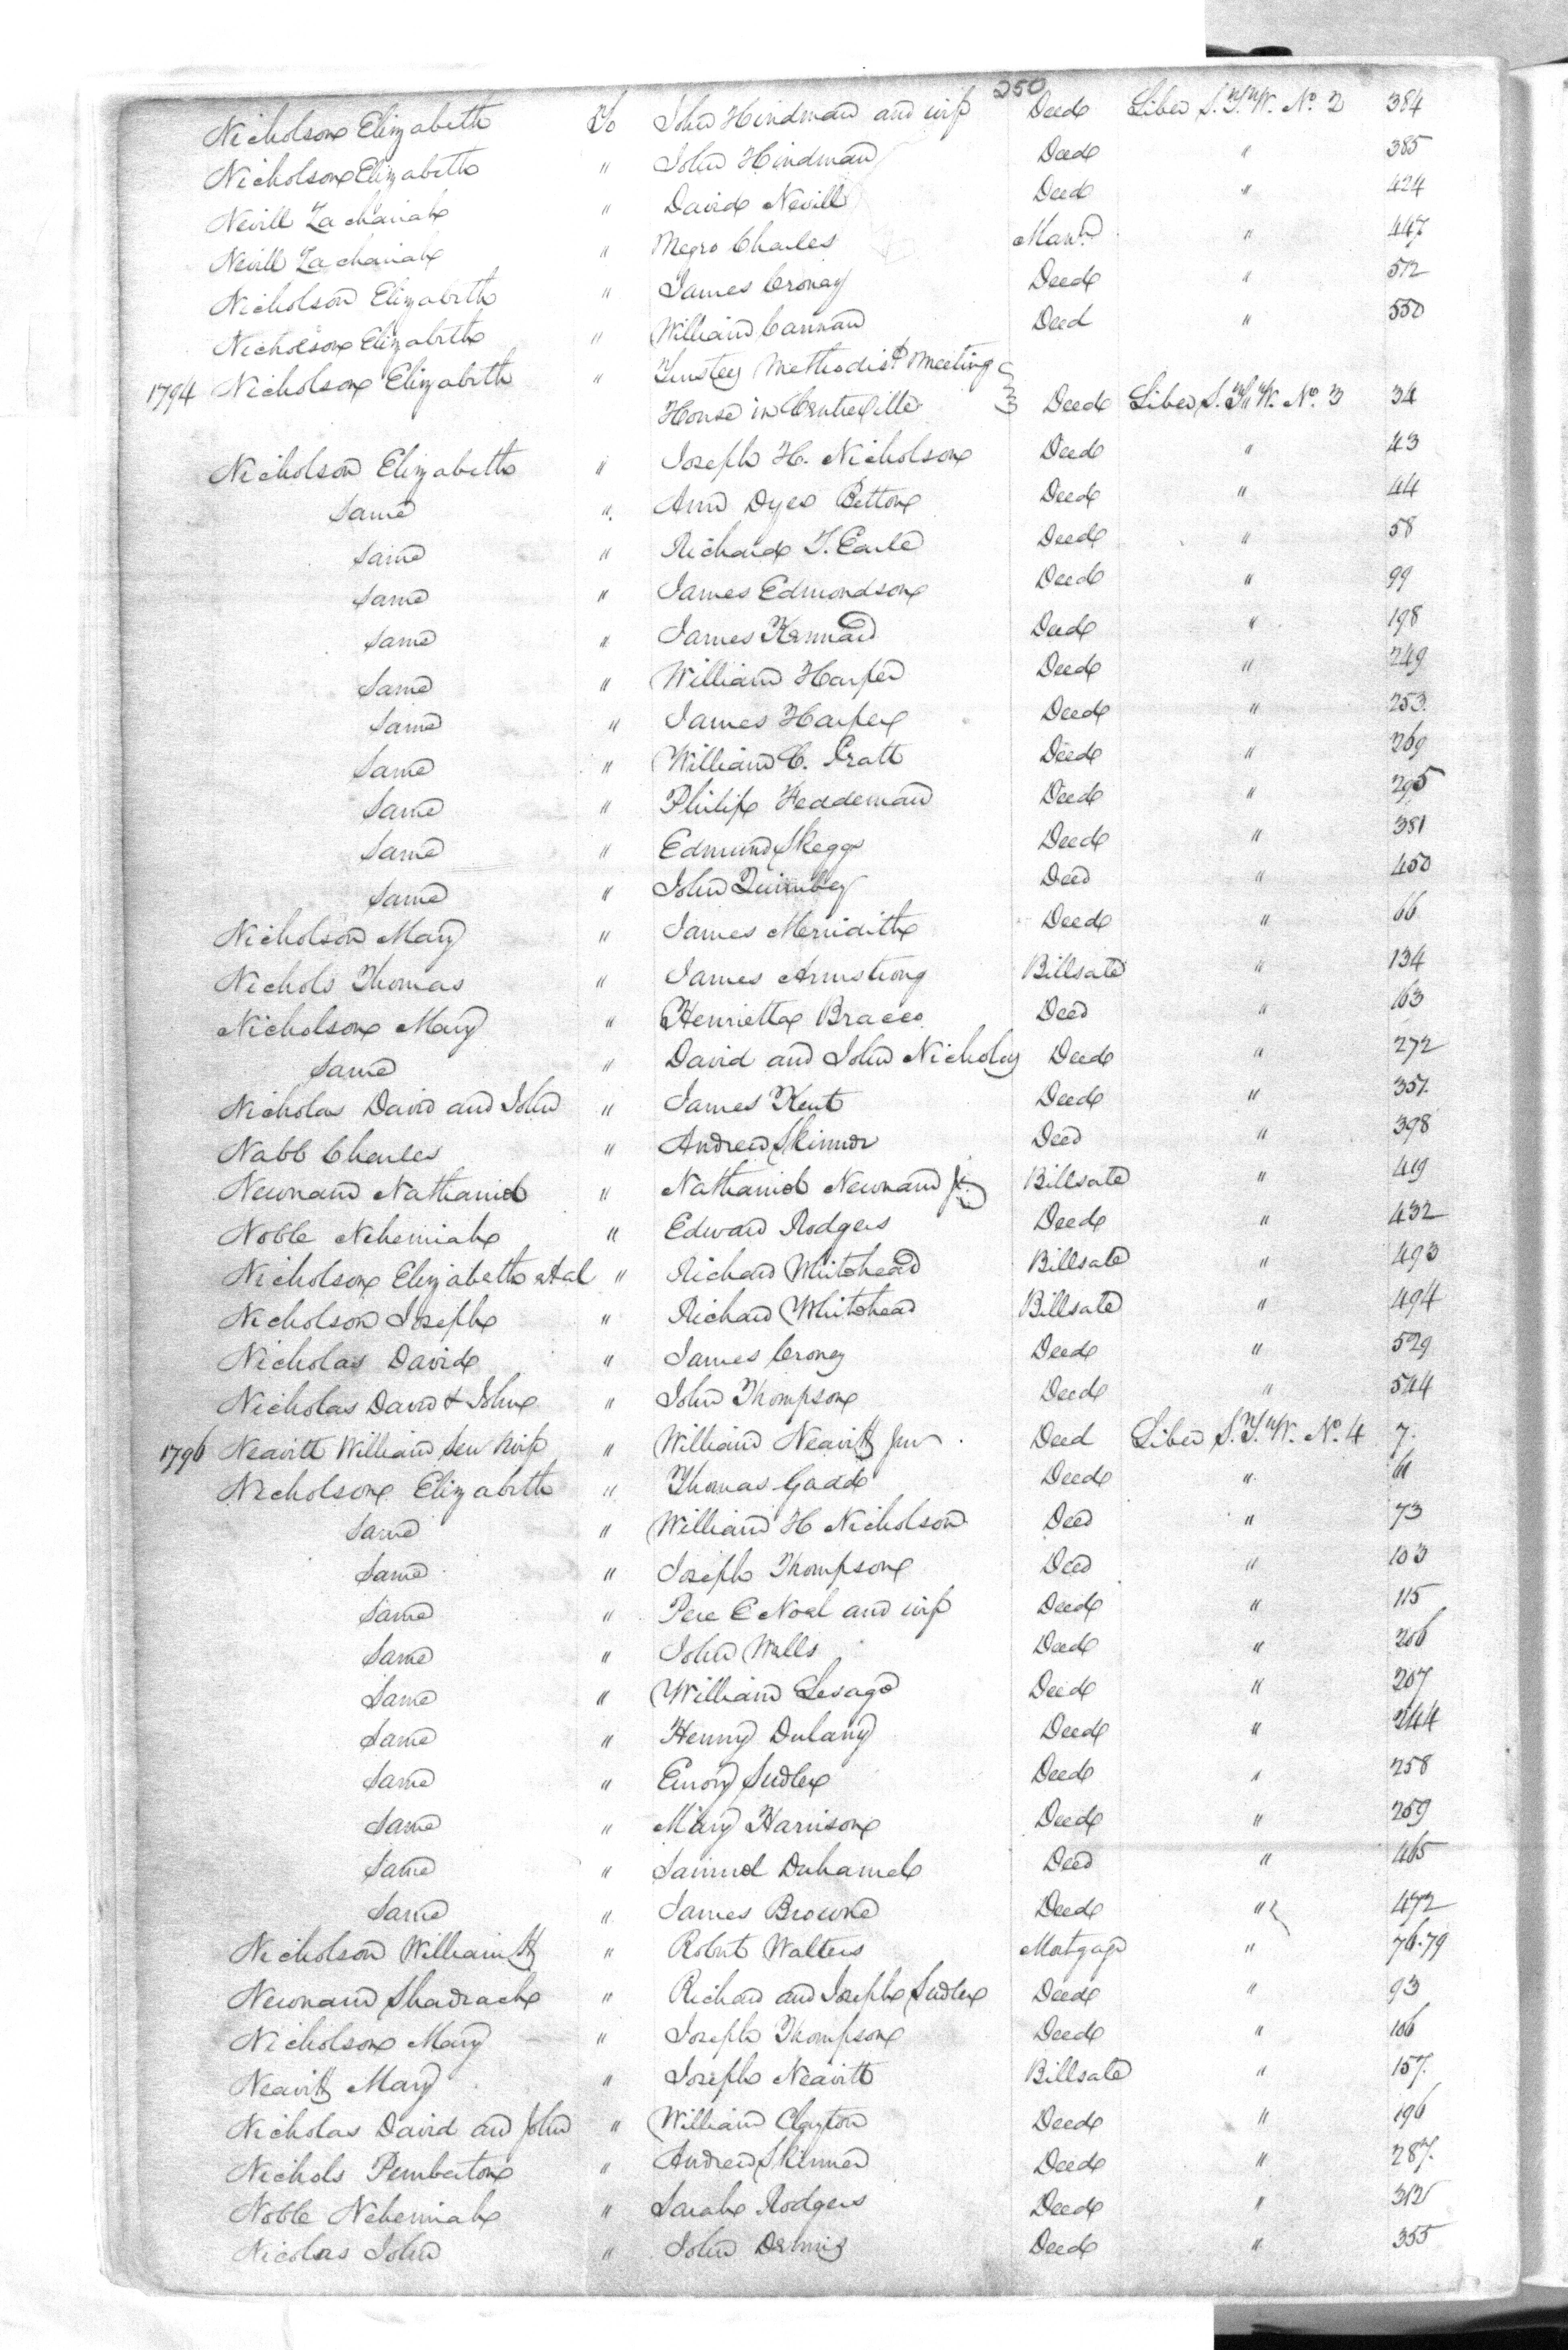 250
Nicholson Elizabeth To John Hindman and wife Deed Liber S.T.W. No. 2 384
Nicholson Elizabeth " John Hindman Deed " 385
Nevill Zachariah " David Nevill Deed " 424
Nevill Zachariah " Negro Charles Mann. " 447
Nicholson Elizabeth " James Croney Deed " 512
Nicholson Elizabeth " William Cannan Deed " 550
1794 Nicholson Elizabeth " Trustees Methodist Meeting
House in Centreville Deed Liber S.T.W. No. 3 34
Nicholson Elizabeth " Joseph H. Nicholson Deed " 43
Same " Ann Dyer Betton Deed " 44
Same " Richard T. Earle Deed " 58
Same " James Edmondson Deed " 99
Same " James Kennard Deed " 198
Same " William Harper Deed " 249
Same " James Harper Deed " 253.
Same " William C. Pratt Deed " 269
Same " Philip Feddeman Deed " 295
Same " Edmund Skeggs Deed " 381
Same " John Quimbey Deed " 450
Nicholson Mary " James Meridith Deed " 66
Nichols Thomas " James Armstrong Billsale " 134
Nicholson Mary " Henrietta Bracco Deed " 163
Same " David and John Nicholas Deed " 272
Nicholas David and John " James Kent Deed " 357.
Nabb Charles " Andrew Skinner Deed " 398
Newnam Nathaniel " Nathaniel Newnam Jr. Billsale " 419
Noble Nehemiah " Edward Rodgers Deed " 432
Nicholson Elizabeth et al " Richard Whitehead Billsale " 493
Nicholson Joseph " Richard Whitehead Billsale " 494
Nicholas David " James Croney Deed " 529
Nicholas David & John " John Thompson Deed " 544
1796 Neavitt William Sen Wife " William Neavitt Jun. Deed Liber S.T.W. No. 4 7.
Nicholson Elizabeth " Thomas Gadd Deed " 61
Same " William H Nicholson Deed " 73
Same " Joseph Thompson Deed " 103
Same " Pere E Noel and wife Deed " 115
Same " John Wells Deed " 206
Same " William Lesage Deed " 207
Same " Henny Dulany Deed " 244
Same " Emory Sudler Deed " 258
Same " Mary Harrison Deed " 259
Same " Samuel Duhamel Deed " 465
Same " James Browne Deed " 472
Nicholson William H " Robert Walters Mortgage " 76.79
Newnam Shadrach " Richard and Joseph Sudler Deed " 93
Nicholson Mary " Joseph Thompson Deed " 106
Neavitt Mary " Joseph Neavitt Billsale " 157.
Nicholas David and John " William Clayton Deed " 196
Nichols Pemberton " Andrew Skinner Deed " 287.
Noble Nehemiah " Sarah Rodgers Deed " 312
Nicolas John " John Deed " 355